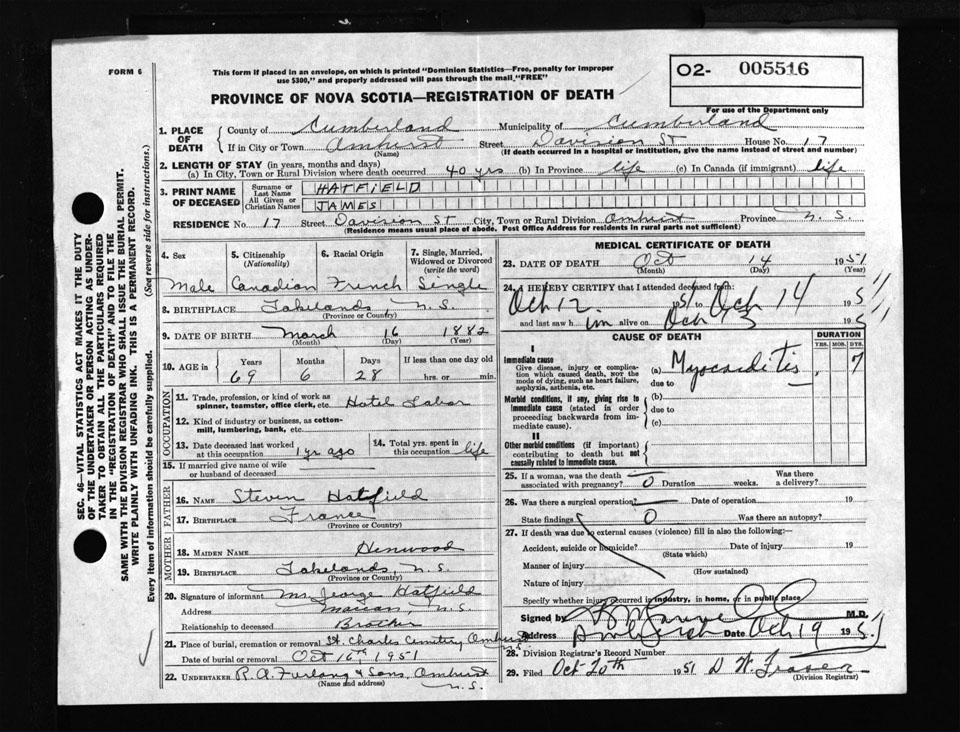 FORM 6
This form if placed in an envelope, on which is printed "Dominion Statistics—Free, penalty for improper
use $300," and properly addressed will pass through the mail "FREE"
O2- 005516
For use of the Department only
PROVINCE OF NOVA SCOTIA—REGISTRATION OF DEATH
1. PLACE OF DEATH { County of Cumberland Municipality of Cumberland
If in City or Town Amherst Street Davision St House No. 17
(Name) (If death occurred in a hospital or institution, give the name instead of street and number)
2. LENGTH OF STAY (in years, months and days)
(a) In City, Town or Rural Division where death occurred 40 yrs (b) In Province life (c) In Canada (if immigrant) life
3. PRINT NAME OF DECEASED { Surname or Last Name HATFIELD
All Given or Christian Names JAMES
RESIDENCE No. 17 Street Davision St City, Town or Rural Division Amherst Province N.S.
(Residence means usual place of abode. Post Office Address for residents in rural parts not sufficient)
4. Sex
Male
5. Citizenship
(Nationality)
Canadian
6. Racial Origin
French
7. Single, Married,
Widowed or Divorced
(write the word)
Single
8. BIRTHPLACE Lakelands N.S.
(Province or Country)
9. DATE OF BIRTH March 16 1882
(Month) (Day) (Year)
10. AGE in { Years Months Days If less than one day old
69 6 28 hrs. or min.
OCCUPATION
11. Trade, profession, or kind of work as
spinner, teamster, office clerk, etc. Hotel Labor
12. Kind of industry or business, as cotton-
mill, lumbering, bank, etc.
13. Date deceased last worked
at this occupation 1 yr ago
14. Total yrs. spent in
this occupation life
15. If married give name of wife
or husband of deceased
FATHER
16. NAME Steven Hatfield
17. BIRTHPLACE France
(Province or Country)
MOTHER
18. MAIDEN NAME Henwood
19. BIRTHPLACE Lakelands, N.S.
(Province or Country)
20. Signature of informant Mr. George Hatfield
Address Maccan, N.S.
Relationship to deceased Brother
21. Place of burial, cremation or removal St. Charles Cemetery Amherst N.S.
Date of burial or removal Oct 16th 1951
22. UNDERTAKER R.A. Furlong & Sons, Amherst
(Name and address) N.S.
MEDICAL CERTIFICATE OF DEATH
23. DATE OF DEATH Oct 14 1951
(Month) (Day) (Year)
24. I HEREBY CERTIFY that I attended deceased from:
Oct 12 1951 to Oct 14 1951
and last saw him alive on Oct 13 1951
CAUSE OF DEATH
DURATION
YRS. MOS. DYS.
I
Immediate cause
Give disease, injury or complica-
tion which caused death, NOT the
mode of dying, such as heart failure,
asphyxia, asthenia, etc.
(a) Myocarditis 7
due to
Morbid conditions, if any, giving rise to
immediate cause (stated in order
proceeding backwards from im-
mediate cause).
(b)
due to
(c)
II
Other morbid conditions (if important)
contributing to death but not
causally related to immediate cause.
25. If a woman, was the death
associated with pregnancy? 0 Duration weeks. Was there
a delivery?
26. Was there a surgical operation? Date of operation 19
State findings 0 Was there an autopsy?
27. If death was due to external causes (violence) fill in also the following:—
Accident, suicide or homicide? Date of injury 19
(State which)
Manner of injury
(How sustained)
Nature of injury
Specify whether injury occurred in industry, in home, or in public place
Signed by M.D.
Address Amherst Date Oct 19 1951
28. Division Registrar's Record Number
29. Filed Oct 20th 1951 D W. Fraser
(Division Registrar)
SEC. 46—VITAL STATISTICS ACT MAKES IT THE DUTY
OF THE UNDERTAKER OR PERSON ACTING AS UNDER-
TAKER TO OBTAIN ALL THE PARTICULARS REQUIRED
IN THE "REGISTRATION OF DEATH" AND TO FILE THE
SAME WITH THE DIVISION REGISTRAR WHO SHALL ISSUE THE BURIAL PERMIT.
WRITE PLAINLY WITH UNFADING INK. THIS IS A PERMANENT RECORD.
Every item of information should be carefully supplied. (See reverse side for instructions.)